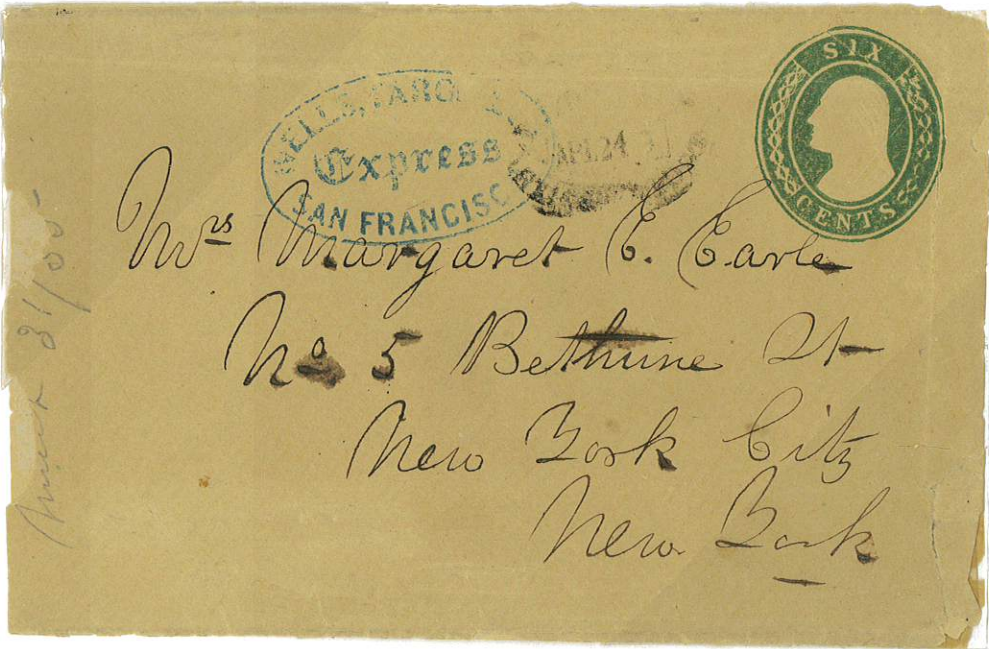 SIX
CENTS
WELLS, FARGO
Express
SAN FRANCISC
APL 24
Mrs Margaret E. Earle
No. 5 Bethune St
New York City
New York